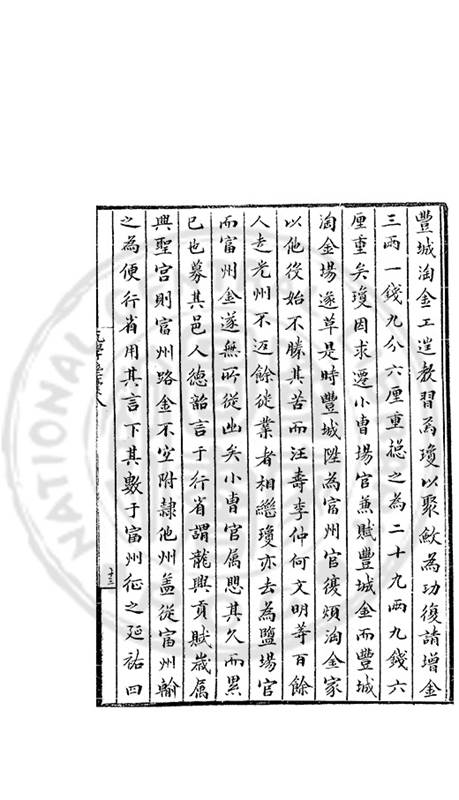 豐城淘金工遊教習焉瓊以聚歛為功復請增金
三兩一錢九分六厘重總之為二十九兩九錢六
厘重矣瓊因求遷小曹場官兼賦豐城金而豐城
淘金場遂革是時豐城陞為富州官復煩淘金家
以他役始不勝其苦而汪壽李仲何文明等百餘
人走光州不返餘徒業者相繼瓊亦去為鹽場官
而富州金遂無所從出矣小曹官屬思其久而累
已也募其邑人德韶言于行省謂龍興貢賦嵗屬
興聖宮則富州路金不宜附隸他州盖從富州輸
之為便行省用其言下其數于富州征之延祐四
十三
NATIONAL